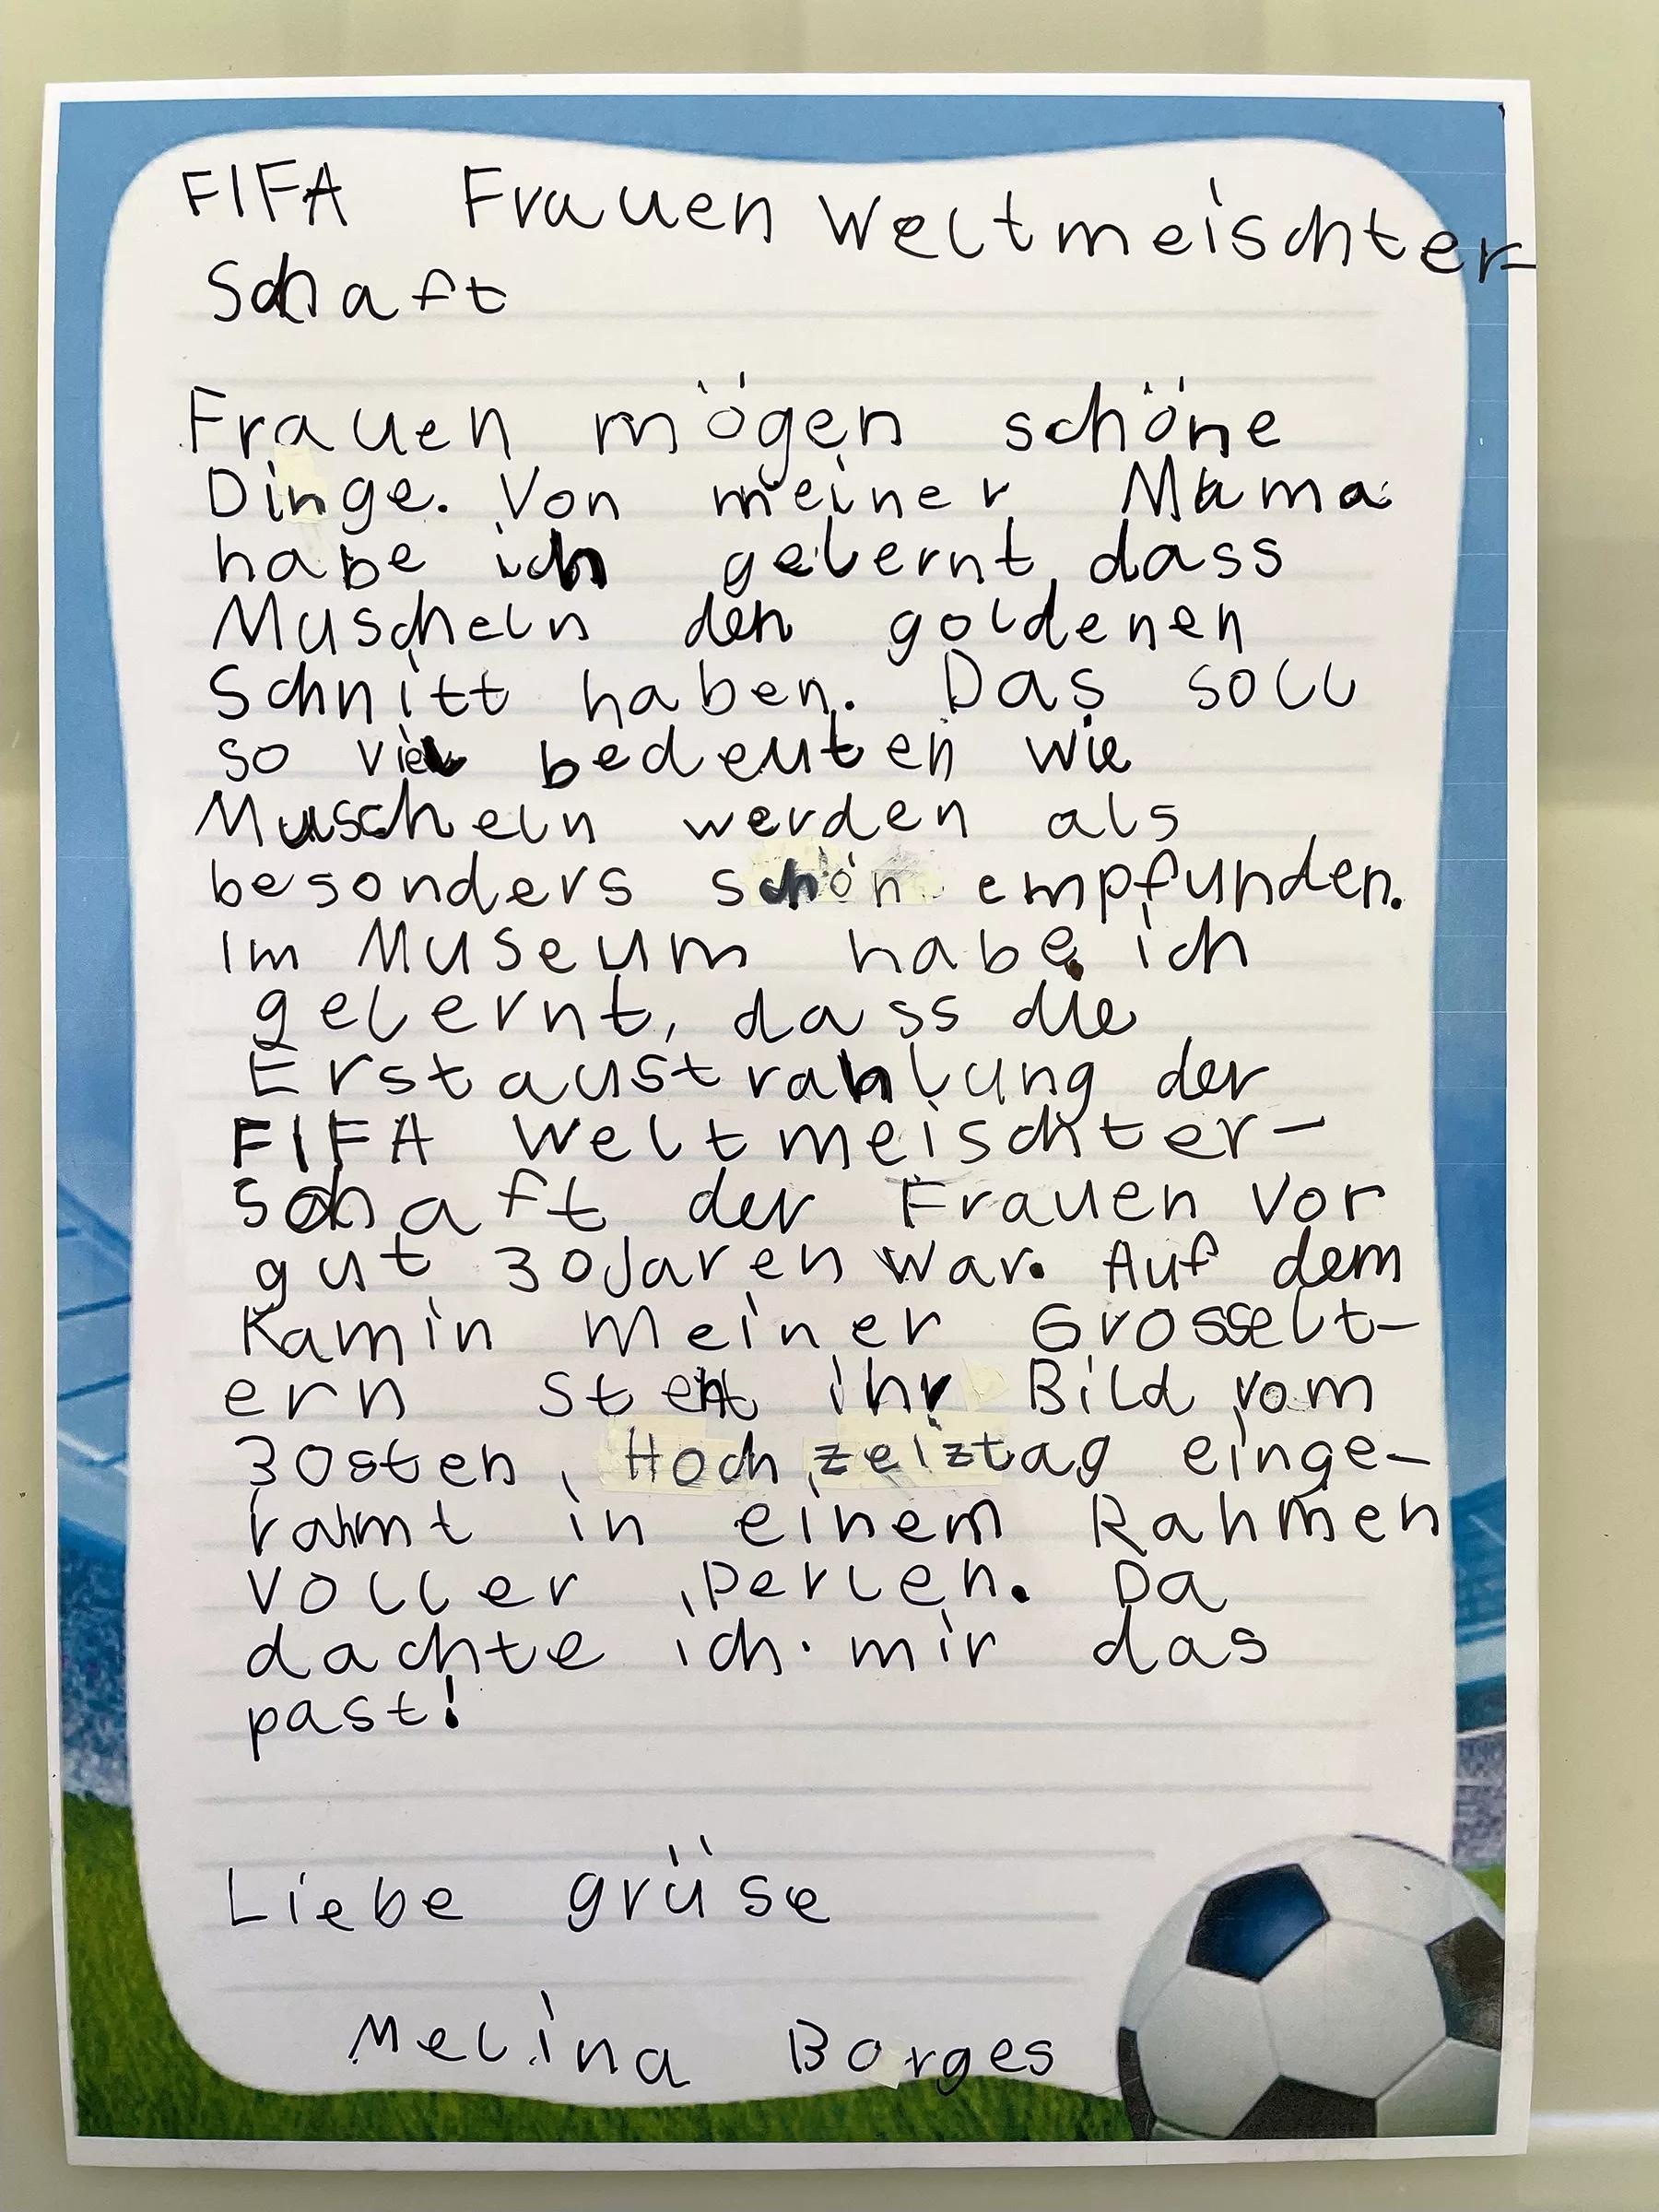 FIFA Frauen Weltmeischter-
Schaft
Frauen mögen schöne
Dinge. Von meiner Mama
habe ich gelernt, dass
Muscheln den goldenen
Schnitt haben. Das soll
so viel bedeuten wie
Muscheln werden als
besonders schön empfunden.
Im Museum habe ich
gelernt, dass die
Erstaustrahlung der
FIFA Weltmeischter-
schaft der Frauen vor
gut 30 Jaren war. Auf dem
Kamin meiner Grosselt-
ern steht ihr Bild vom
30sten Hochzeiztag einge-
rahmt in einem Rahmen
voller Perlen. Da
dachte ich mir das
past!
Liebe grüse
Melina Borges